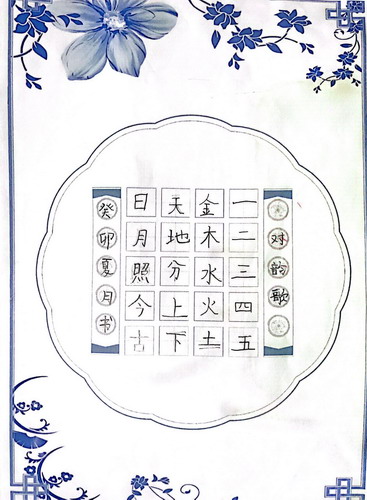 对韵歌
一二三四五
金木水火土
天地分上下
日月照今古
癸卯夏月书